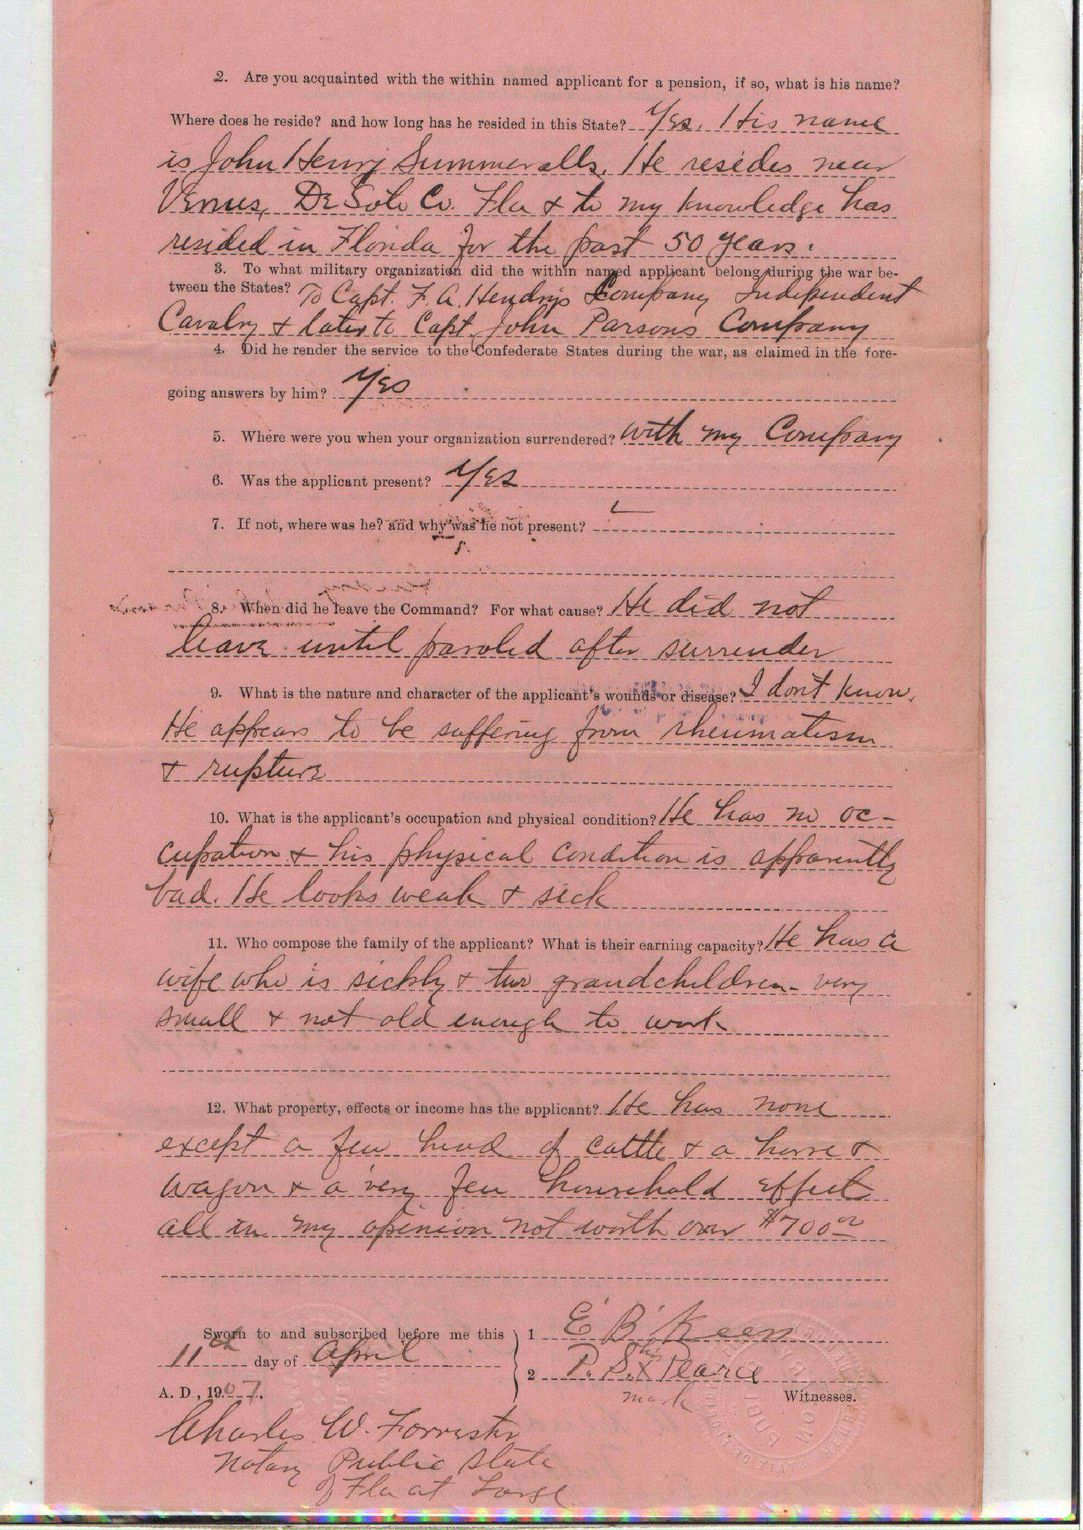 2. Are you acquainted with the within named applicant for a pension, if so, what is his name?
Where does he reside? and how long has he resided in this State? Yes. His name
is John Henry Summeralls. He resides near
Venus, De Soto Co. Fla & to my knowledge has
resided in Florida for the past 50 years.
3. To what military organization did the within named applicant belong during the war be-
tween the States? To Capt. F. A. Hendrys Company Independent
Cavalry & later to Capt John Parsons Company
4. Did he render the service to the Confederate States during the war, as claimed in the fore-
going answers by him? Yes
5. Where were you when your organization surrendered? With my Company
6. Was the applicant present? Yes
7. If not, where was he? and why was he not present?
8. When did he leave the Command? For what cause? He did not
leave until paroled after surrender
9. What is the nature and character of the applicant's wounds or disease? I don't know.
He appears to be suffering from rheumatism
& rupture
10. What is the applicant's occupation and physical condition? He has no oc-
cupation & his physical condition is apparently
bad. He looks weak & sick
11. Who compose the family of the applicant? What is their earning capacity? He has a
wife who is sickly & two grandchildren - very
small & not old enough to work
12. What property, effects or income has the applicant? He has none
except a few head of cattle & a horse &
wagon & a very few household effect
all in my opinion not worth over $700
Sworn to and subscribed before me this
11th day of April
A. D., 1907.
1 E. B. Keen
2 P. S. his x mark Pearce
Witnesses.
Charles W. Forrester
Notary Public State
of Fla at Large